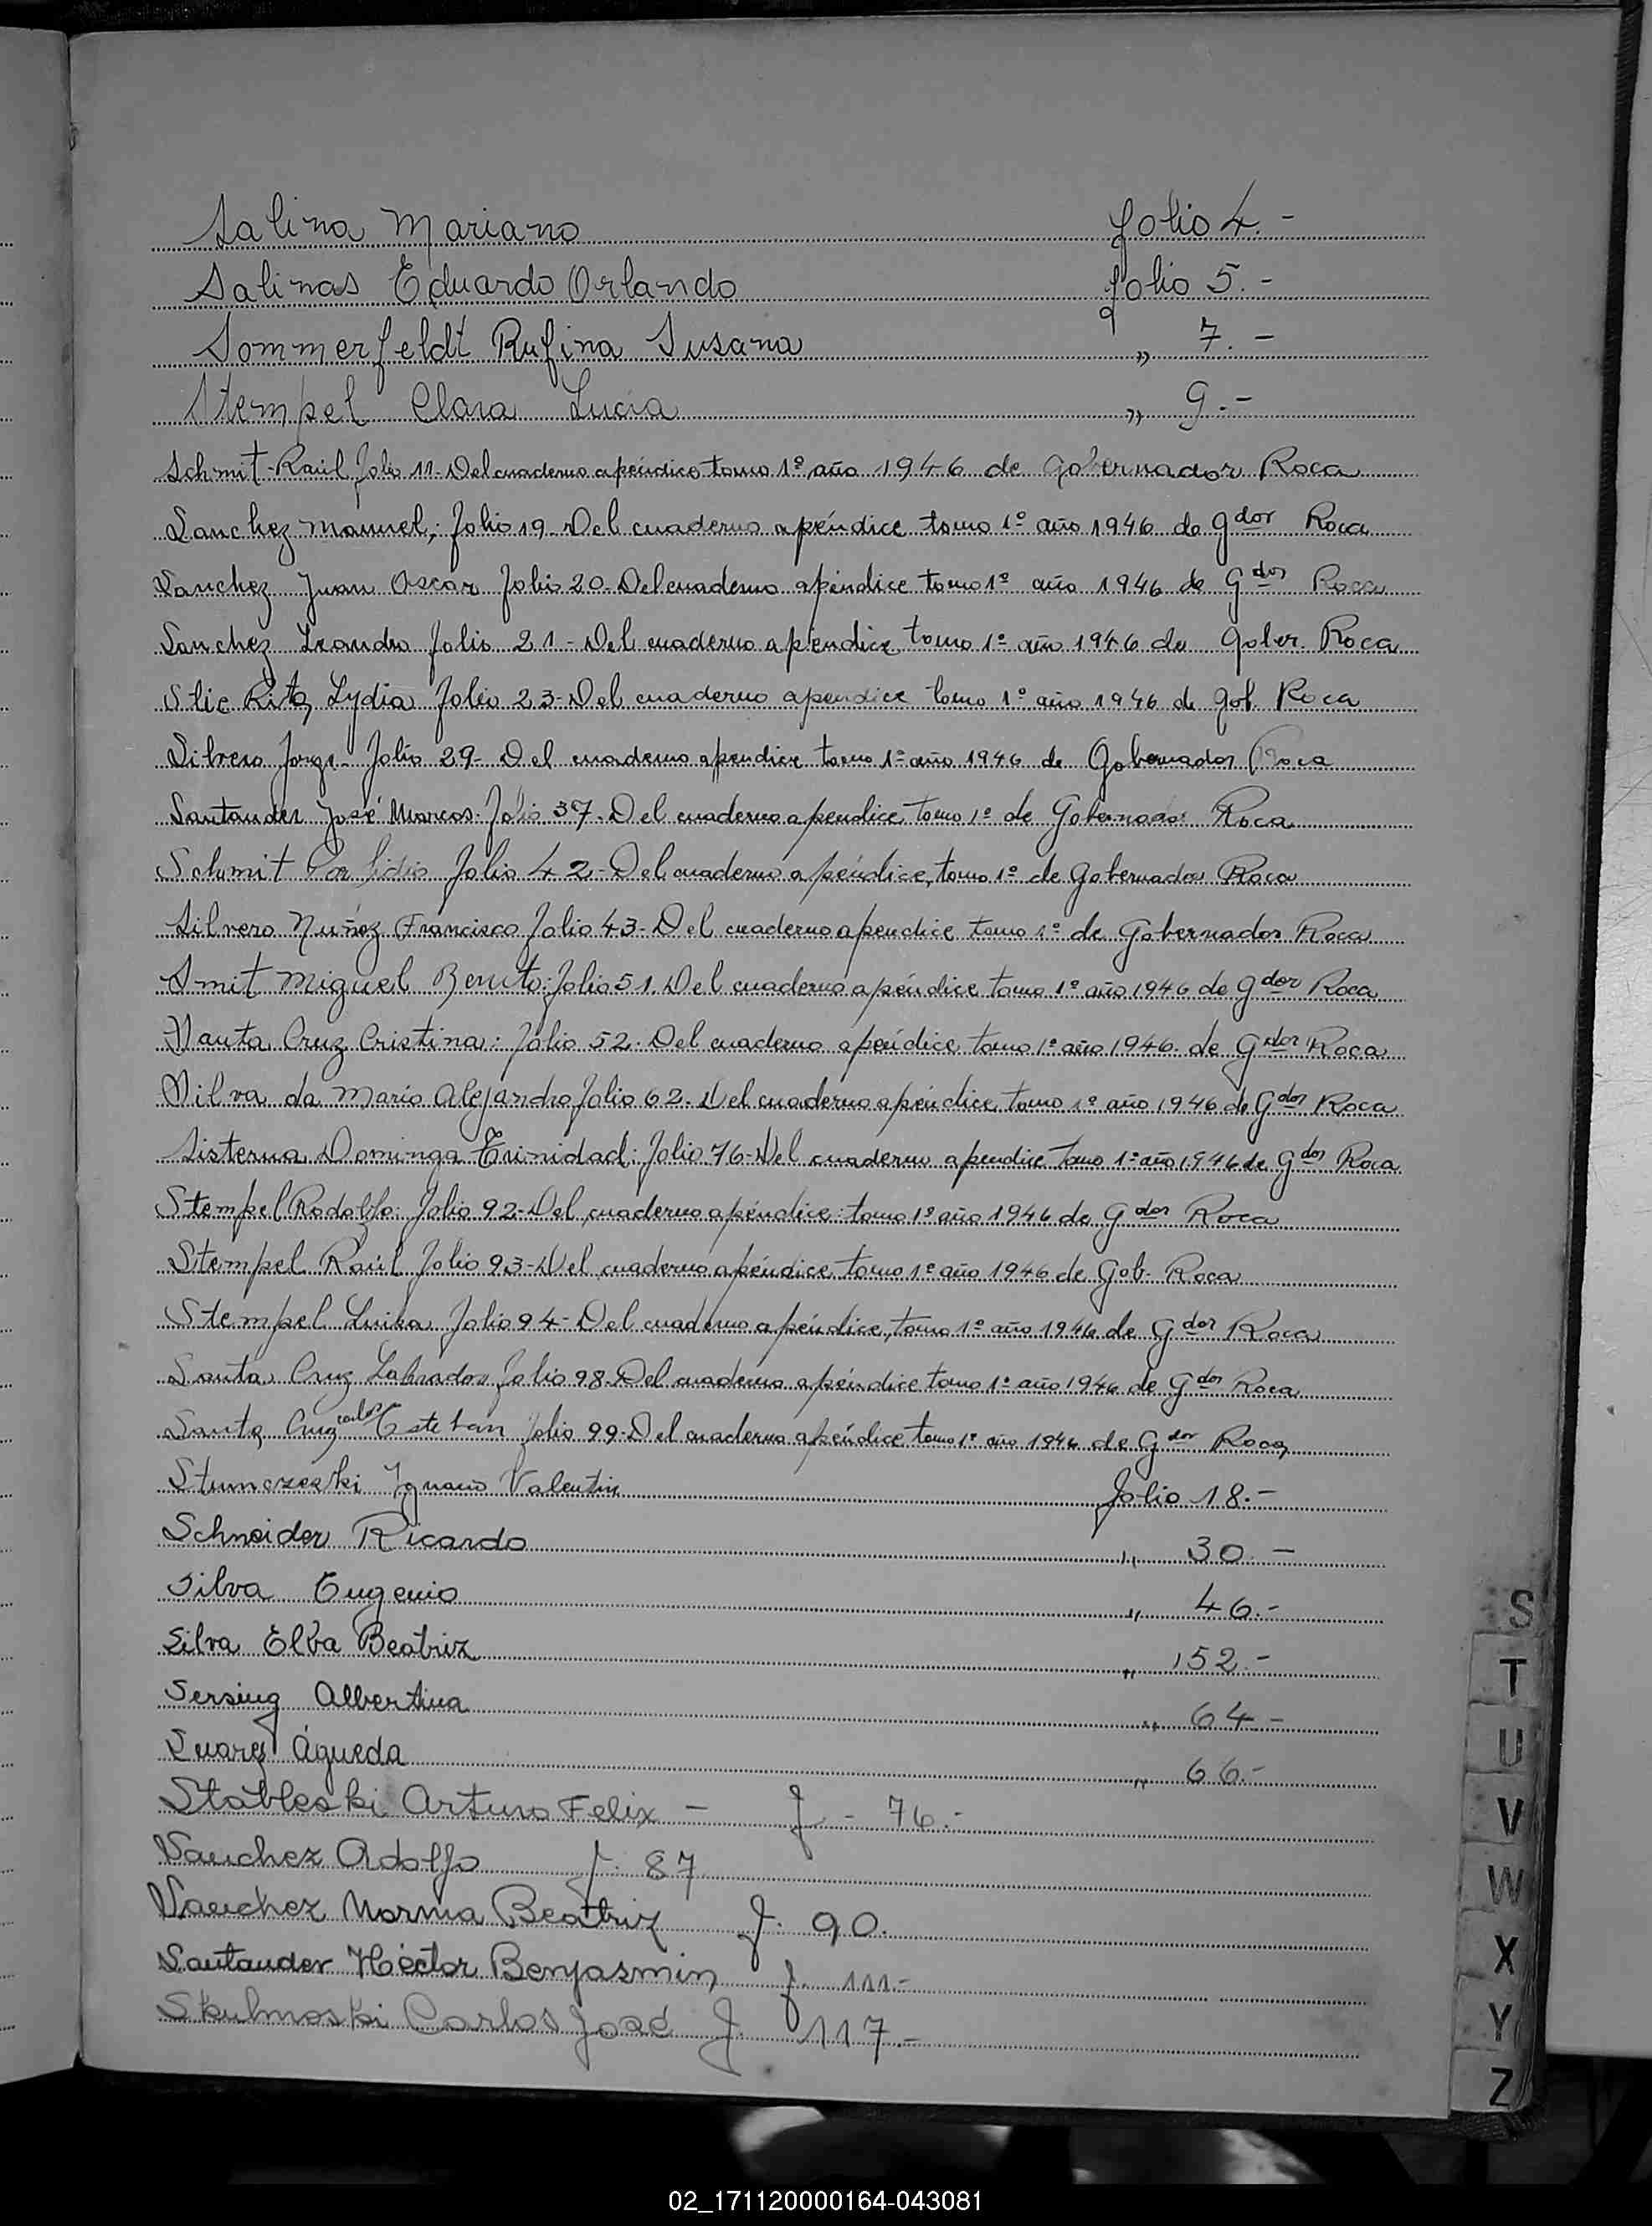 Salina Mariano folio 4.-
Salinas Eduardo Orlando folio 5.-
Sommerfeldt Rufina Susana „ 7.-
Stempel Clara Lucia „ 9.-
Schmit Raúl folio 11- Del cuaderno apéndice tomo 1º año 1946 de Gobernador Roca
Sanchez Manuel; folio 19- Del cuaderno apéndice tomo 1º año 1946 de Gdor Roca
Sanchez Juan Oscar folio 20- Del cuaderno apéndice tomo 1º año 1946 de Gdor Roca
Sanchez Leandro folio 21- Del cuaderno apéndice tomo 1º año 1946 de Gober. Roca
Stic Rita Lydia folio 23- Del cuaderno apendice tomo 1º año 1946 de Gob. Roca
Silvero Jorge- folio 29- Del cuaderno apendice tomo 1º año 1946 de Gobernador Roca
Santander José Marcos. folio 37- Del cuaderno apendice tomo 1º de Gobernador Roca
Schmit Porfidio folio 42- Del cuaderno apéndice, tomo 1º de Gobernador Roca
Silvero Nuñez Francisco folio 43- Del cuaderno apendice tomo 1º de Gobernador Roca
Smit Miguel Benito: folio 51. Del cuaderno apéndice tomo 1º año 1946 de Gdor Roca
Santa Cruz Cristina: folio 52. Del cuaderno apéndice tomo 1º año 1946. de Gdor Roca
Silva da Mario Alejandro folio 62- Del cuaderno apéndice tomo 1º año 1946 de Gdor Roca
Sisterna Dominga Trinidad: folio 76- Del cuaderno apendice tomo 1º año 1946 de Gdor Roca
Stempel Rodolfo: folio 92- Del cuaderno apéndice: tomo 1º año 1946 de Gdor Roca
Stempel Raúl folio 93- Del cuaderno apéndice tomo 1º año 1946 de Gob. Roca
Stempel Luisa folio 94- Del cuaderno apéndice, tomo 1º año 1946 de Gdor Roca
Santa Cruz Labrador folio 98- Del cuaderno apéndice tomo 1º año 1946 de Gdor Roca
Santa Cruz Carlos Esteban folio 99- Del cuaderno apéndice tomo 1º año 1946 de Gdor Roca
Ignacio Valentin folio 18.-
Schneider Ricardo „ 30.-
Silva Eugenio „ 46.-
Silva Elba Beatriz „ 152.-
Sersing Albertina „ 64-
Suarez Águeda „ 66.-
Stableski Arturo Felix - f - 76.-
Sanchez Adolfo f. 87
Sanchez Norma Beatriz f. 90.
Santander Héctor Benjasmin f. 111.-
Skulmoski Carlos José f. 117.-
S
T
U
V
W
X
Y
Z
02_171120000164-043081